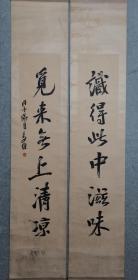 識得此中滋味
覓来無上清涼